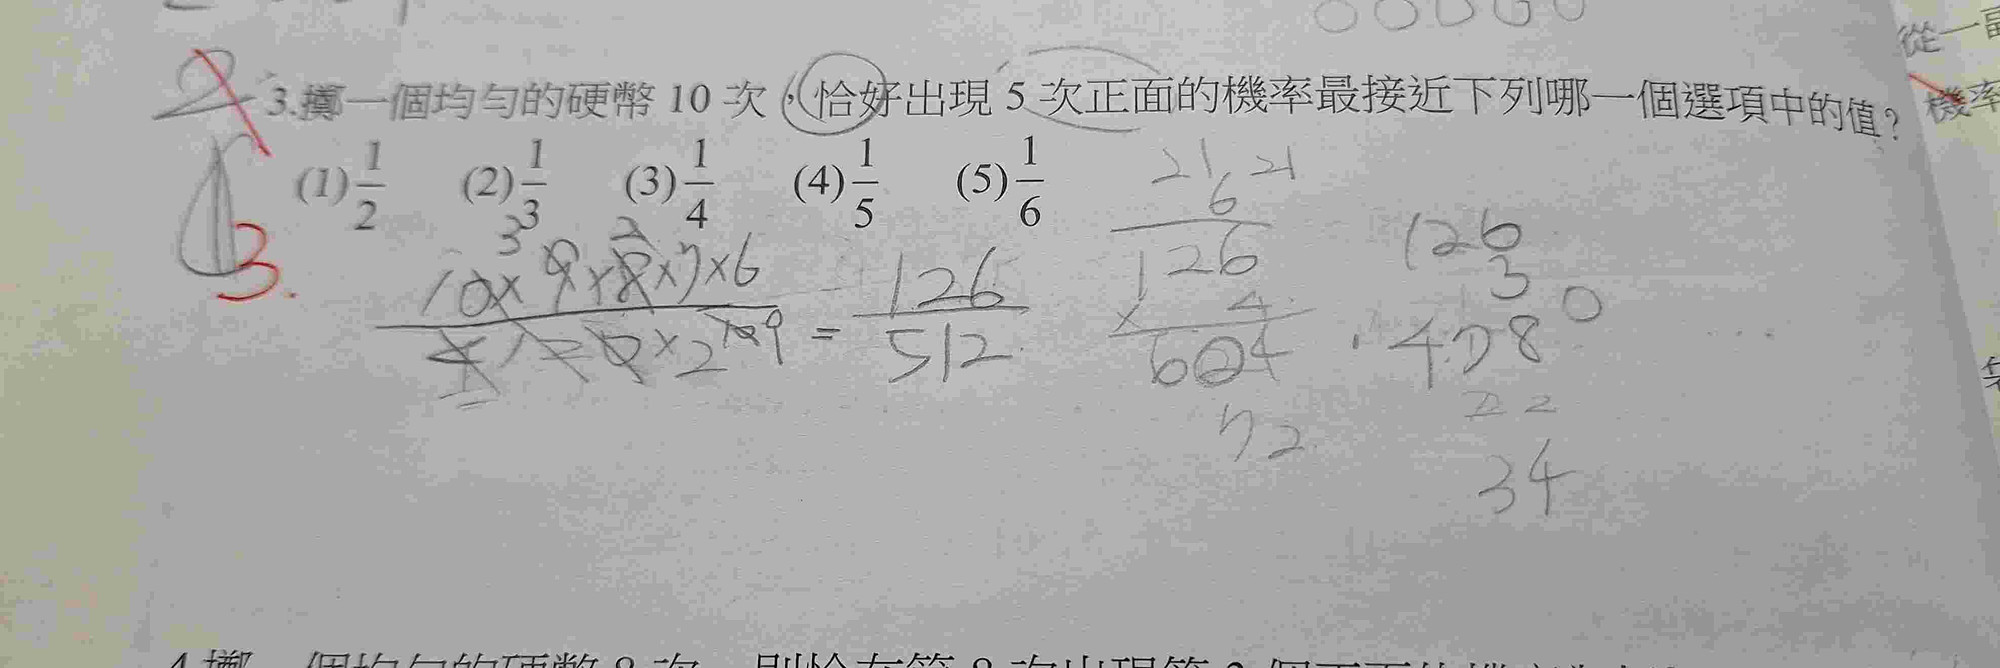 從一副
3.擲一個均勻的硬幣 10 次，恰好出現 5 次正面的機率最接近下列哪一個選項中的值？
機率
(1) 1/2 (2) 1/3 (3) 1/4 (4) 1/5 (5) 1/6
3.
10×9×8×7×6
= 126/512
21 21
6
126
× 4
604
72
126
3
478 0
22
34
4.擲一個均勻的硬幣 8 次，則恰在第 8 次出現第 3 個正面的機率